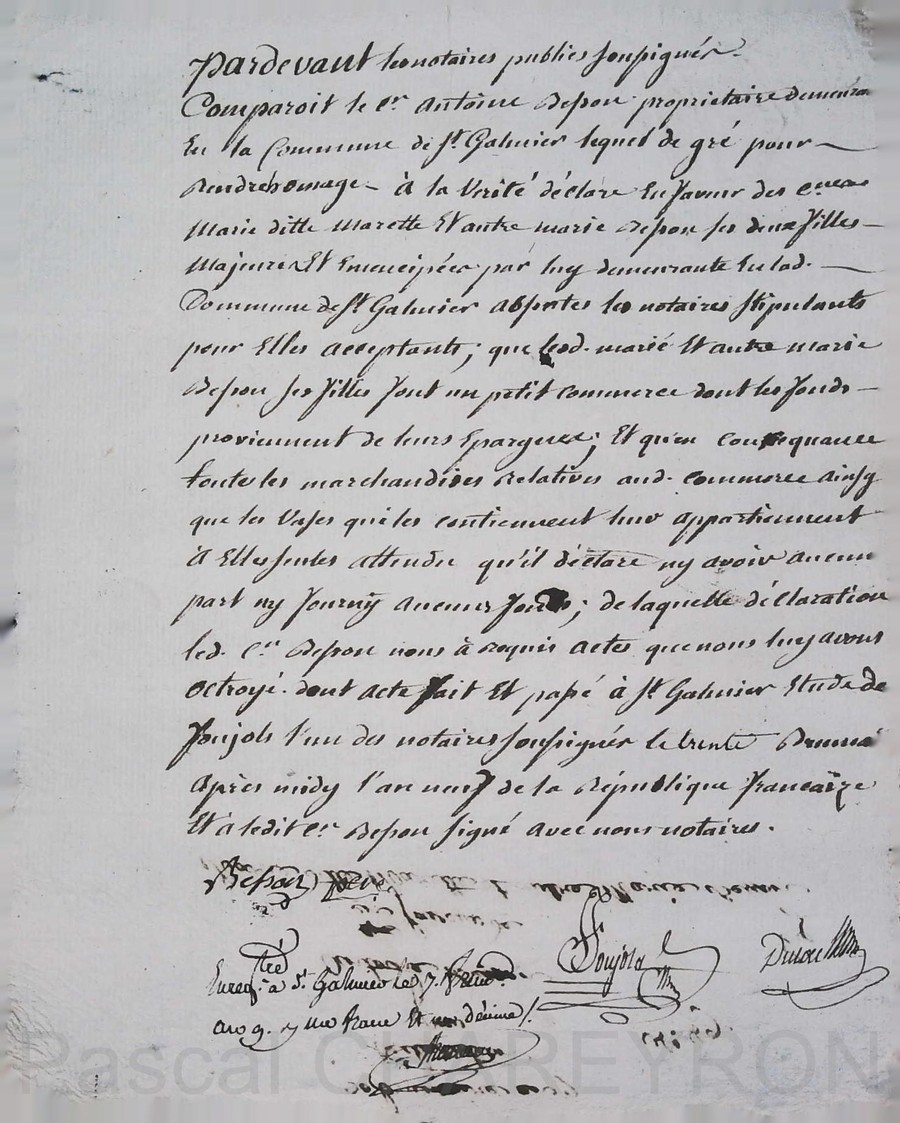 Pardevant les notaires publics soussignés
Comparoit le Cen Antoine Besson proprietaire demeura
En la Commune de St. Galmier lequel de gré pour
Rendre homage à la Verité déclare En faveur des Cnes
Marie ditte Marette Et autre marie Besson ses deux filles
Majeures Et Emencipées par luy demeurante En lad.
Commune de St Galmier absentes les notaires stipulants
pour Elles acceptants; que lesd. marié Et autre marie
Besson ses filles font un petit commerce dont les fonds
proviennent de leurs Epargnes; Et qu'en consequance
toutes les marchandises Relatives aud. commerce ainsy
que les Vases qui les contiennent leur appartiennent
à Elles seules attendu qu'il déclare ny avoir aucun
part ny fourny aucuns fonds; de laquelle déclaration
led. Cen Besson nous à requis actes que nous luy avons
octroyé. dont acte fait Et passé à St Galmier Etude de
Foujols l'un des notaires soussignés le trente Brumai
après midy l'an neuf de la République francaize
Et a ledit Cen Besson signé avec nous notaires.
Besson
Foujols
Enregtré à St Galmier le 7. frim
an 9. un franc Et un décime
Pascal CHAREYRON